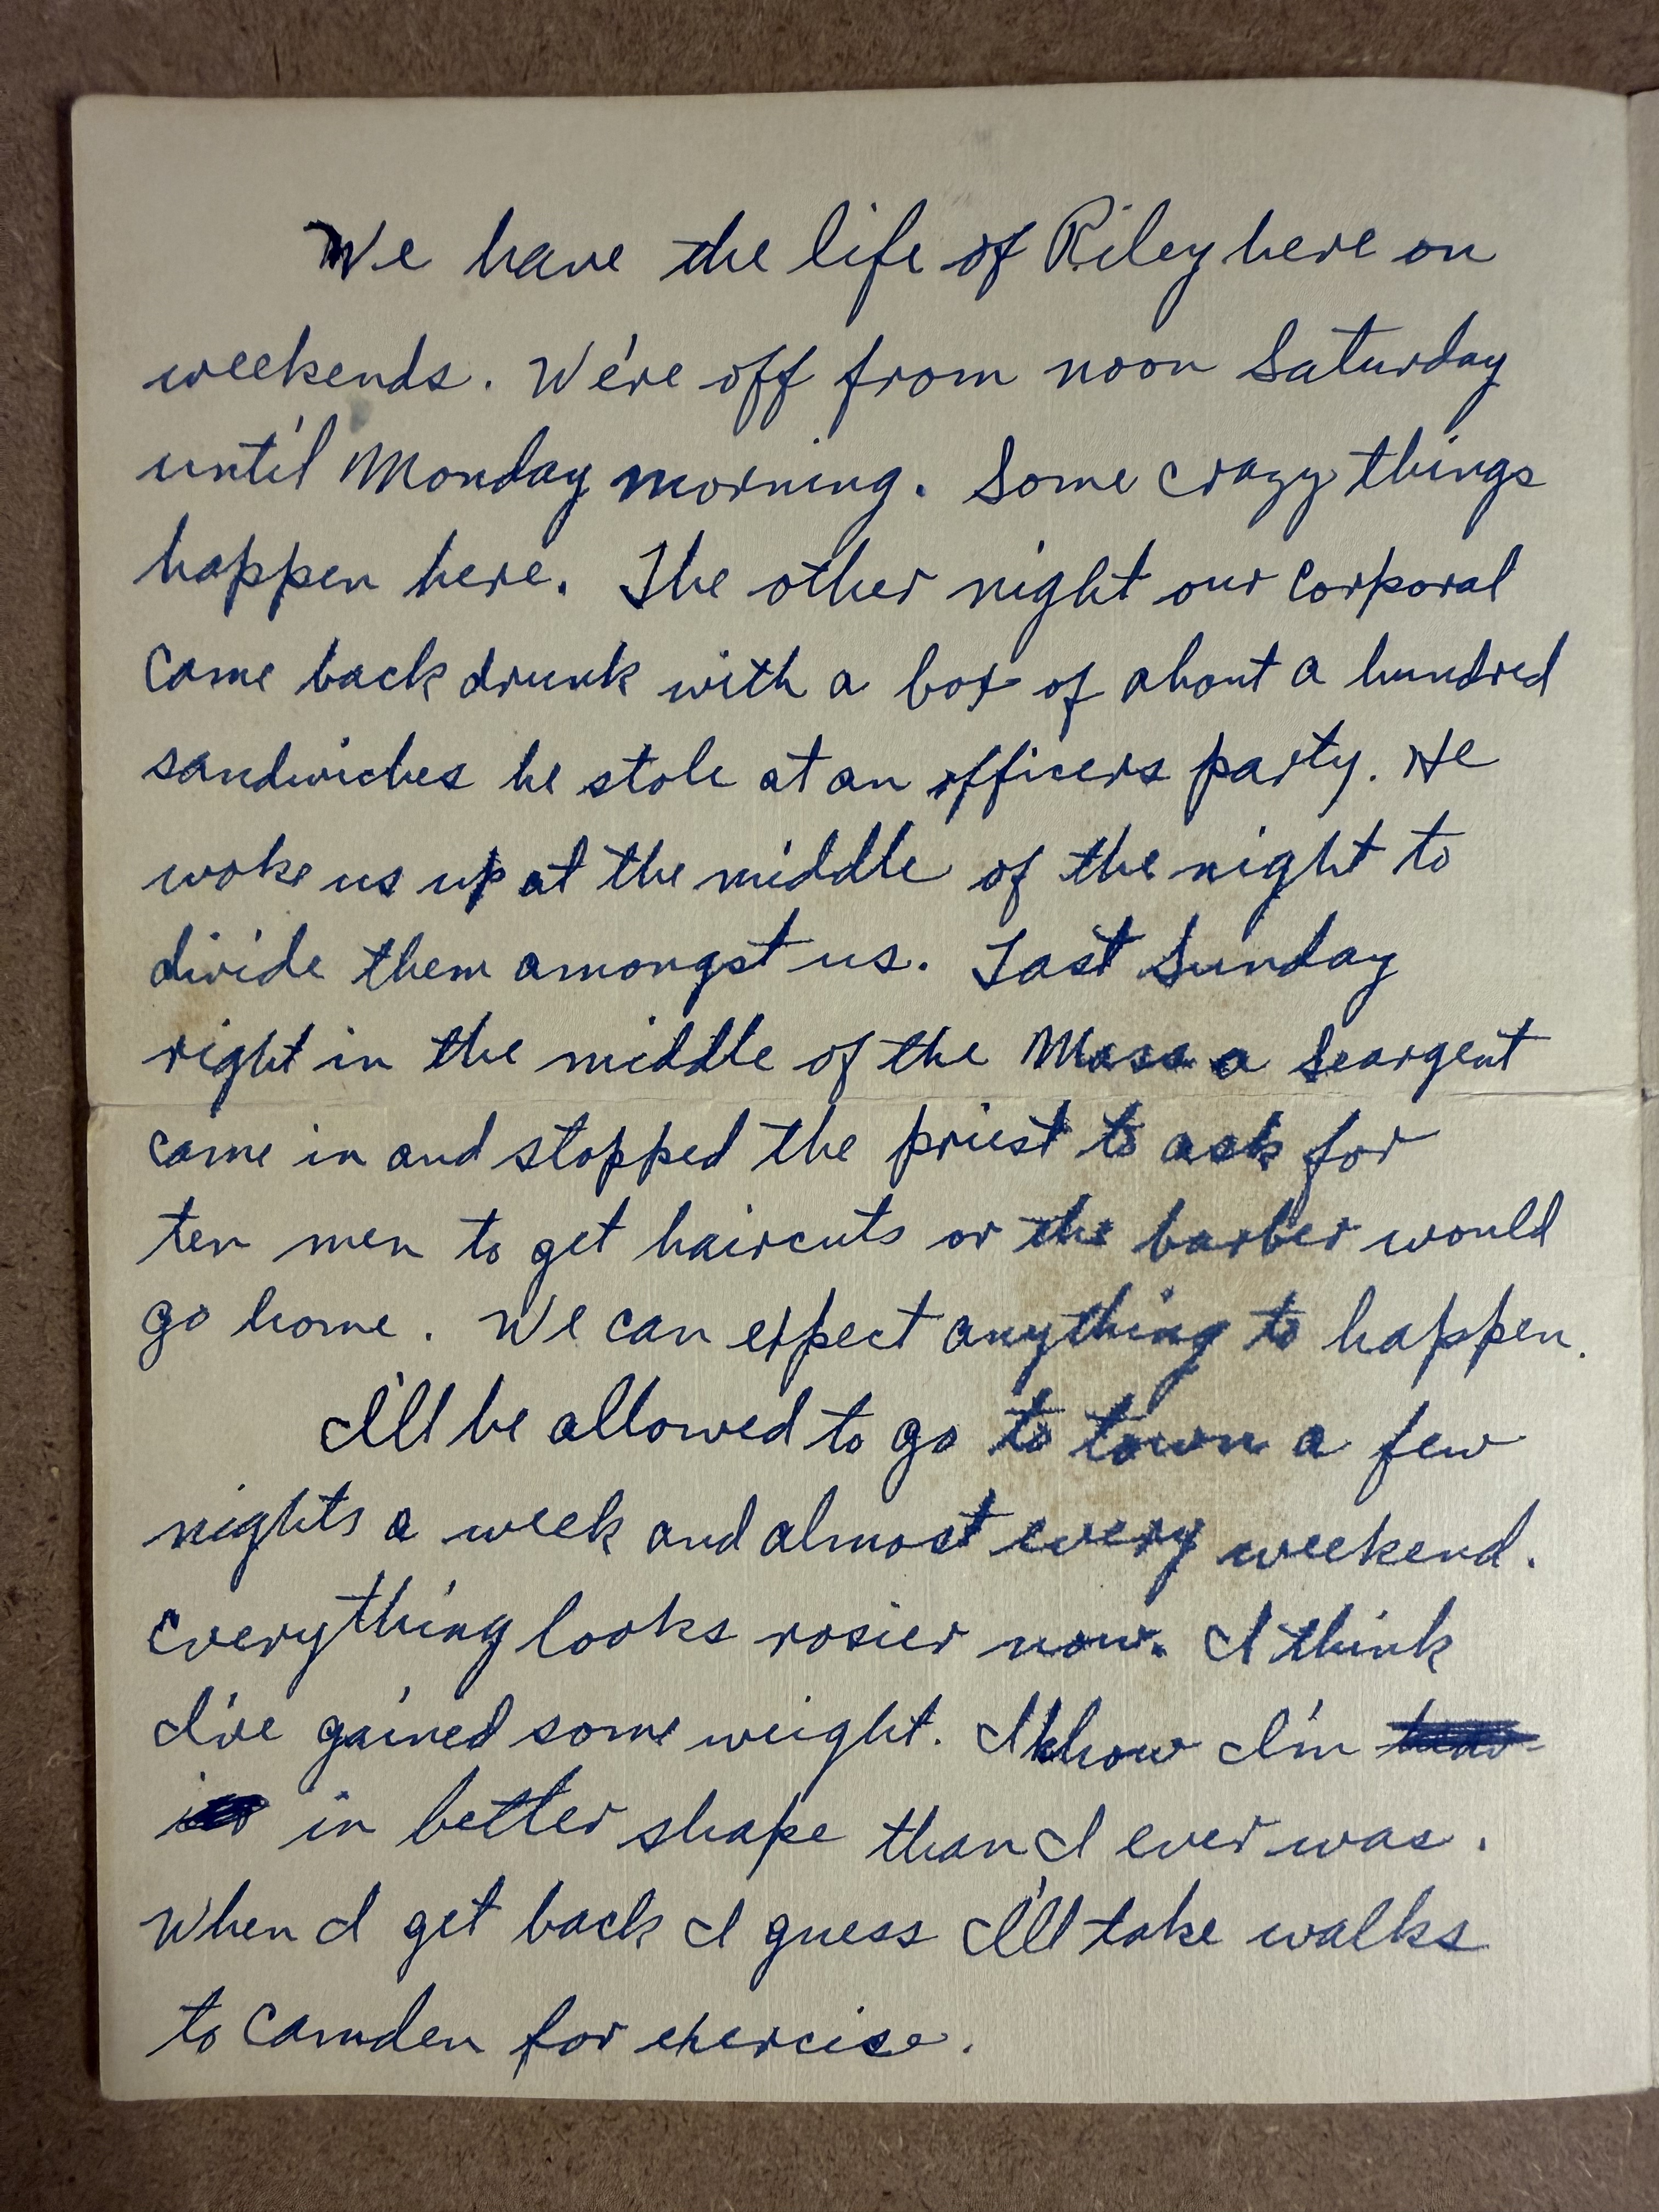 We have the life of Riley here on
weekends. We're off from noon Saturday
until Monday morning. Some crazy things
happen here. The other night our corporal
came back drunk with a box of about a hundred
sandwiches he stole at an officers party. He
woke us up at the middle of the night to
divide them amongst us. Last Sunday
right in the middle of the Mass a seargent
came in and stopped the priest to ask for
ten men to get haircuts or the barber would
go home. We can expect anything to happen.
I'll be allowed to go to town a few
nights a week and almost every weekend.
Everything looks rosier now. I think
I've gained some weight. I know I'm
in better shape than I ever was.
When I get back I guess I'll take walks
to Camden for exercise.